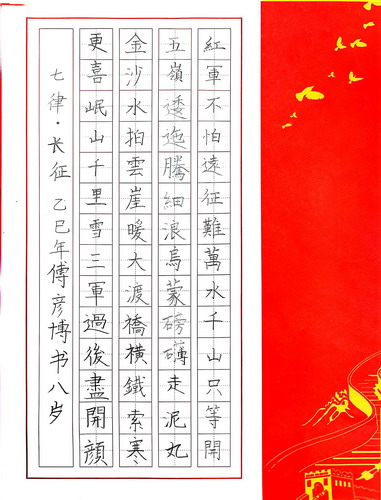 紅軍不怕遠征難萬水千山只等開
五嶺逶迤騰細浪烏蒙磅礴走泥丸
金沙水拍雲崖暖大渡橋橫鐵索寒
更喜岷山千里雪三軍過後盡開顔
七律·长征 乙巳年傅彦博书八岁